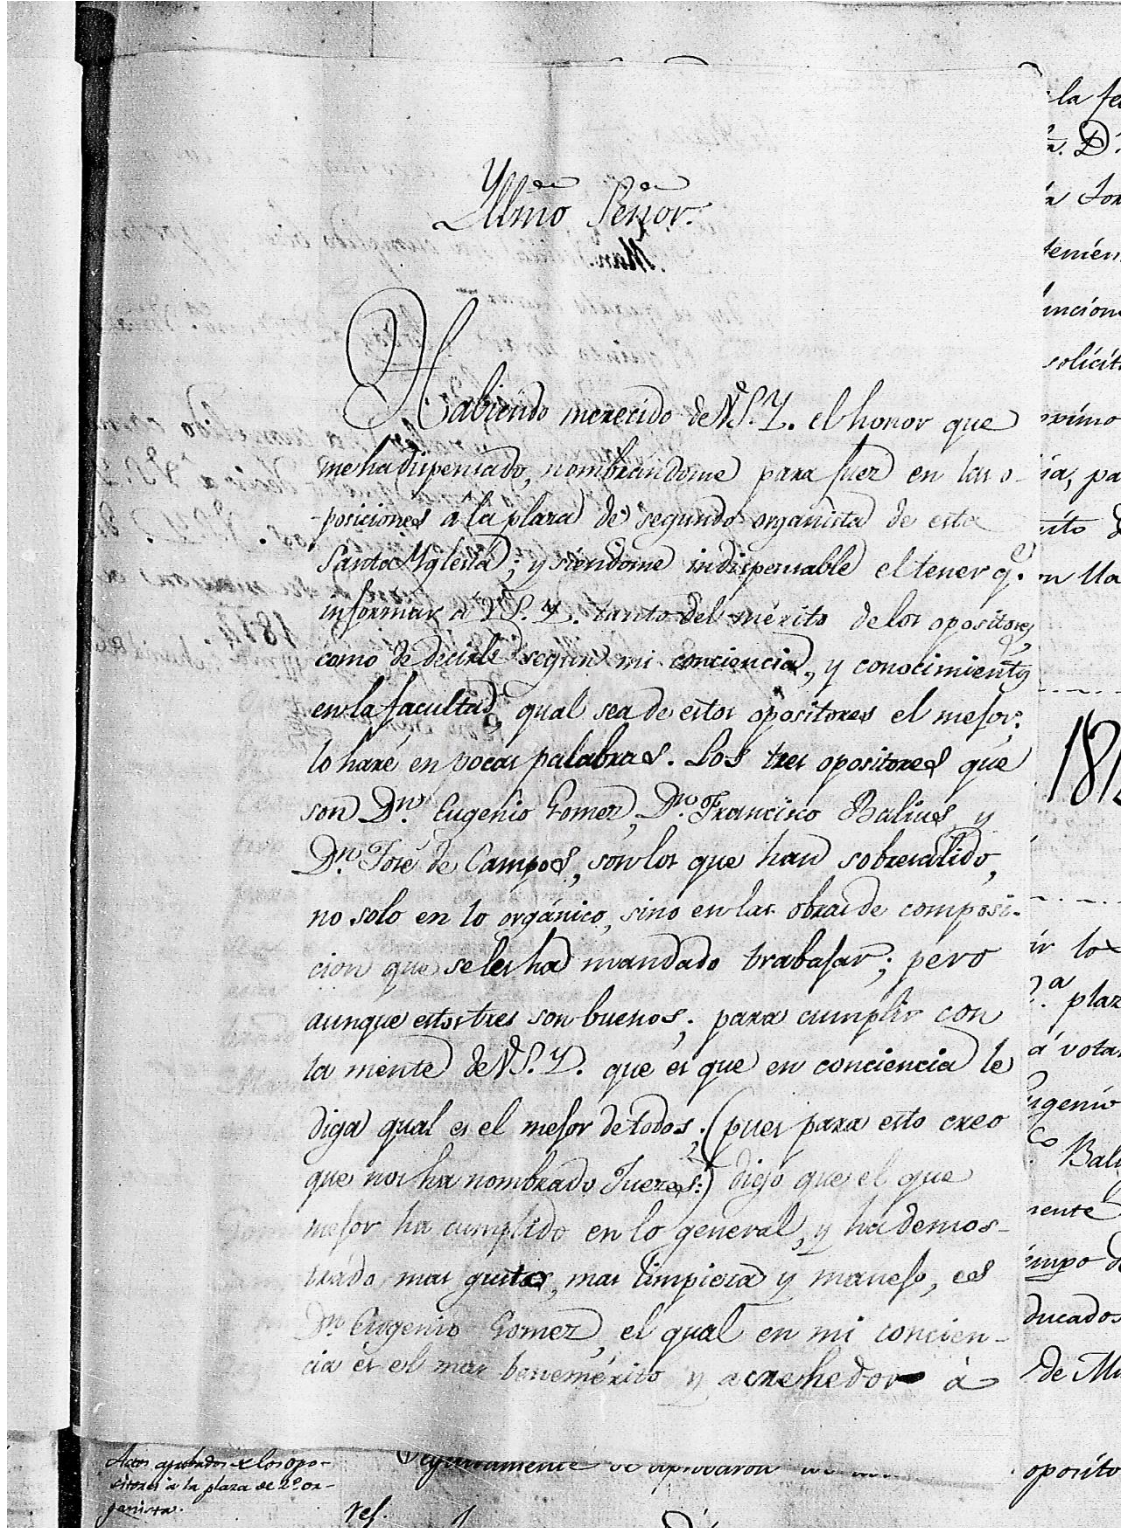 Yllmõ Señor.
Habiendo merecido de V.S.Y. el honor que
me ha dispensado, nombrandome para Juez en las o-
posiciones á la plaza de segundo organista de esta
Santa Yglesia; y siendome indispensable el tener q.e
informar à V.S.Y. tanto del mérito de los opositores,
como de decirle segun mi conciencia, y conocimiento
en la facultad, qual sea de estos opositores el mejor;
lo haré en pocas palabras. Los tres opositores que
son Dn. Eugenio Gomez, Dn. Francisco Balius, y
Dn. José de Campos, son los que han sobresalido,
no solo en lo orgánico, sino en las obras de composi-
cion que se les ha mandado trabajar; pero
aunque estos tres son buenos; para cumplir con
la mente de V.S.Y. que es que en conciencia le
diga qual es el mejor de todos; (pues para esto creo
que nos ha nombrado Jueces:) digo que el que
mejor ha cumplido en lo general, y ha demos-
trado mas gusto, mas limpieza y manejo, es
Dn. Eugenio Gomez, el qual en mi concien-
cia es el mas benemérito y acrehedor á
la
D.
solicit
oximo
181
plaz
á votar
Bali
ducados
de Mu
oposito
Actos aprobados de los opo-
sitores à la plaza de 2.º or-
ganista.
Seguidamente se aprobaron
res.